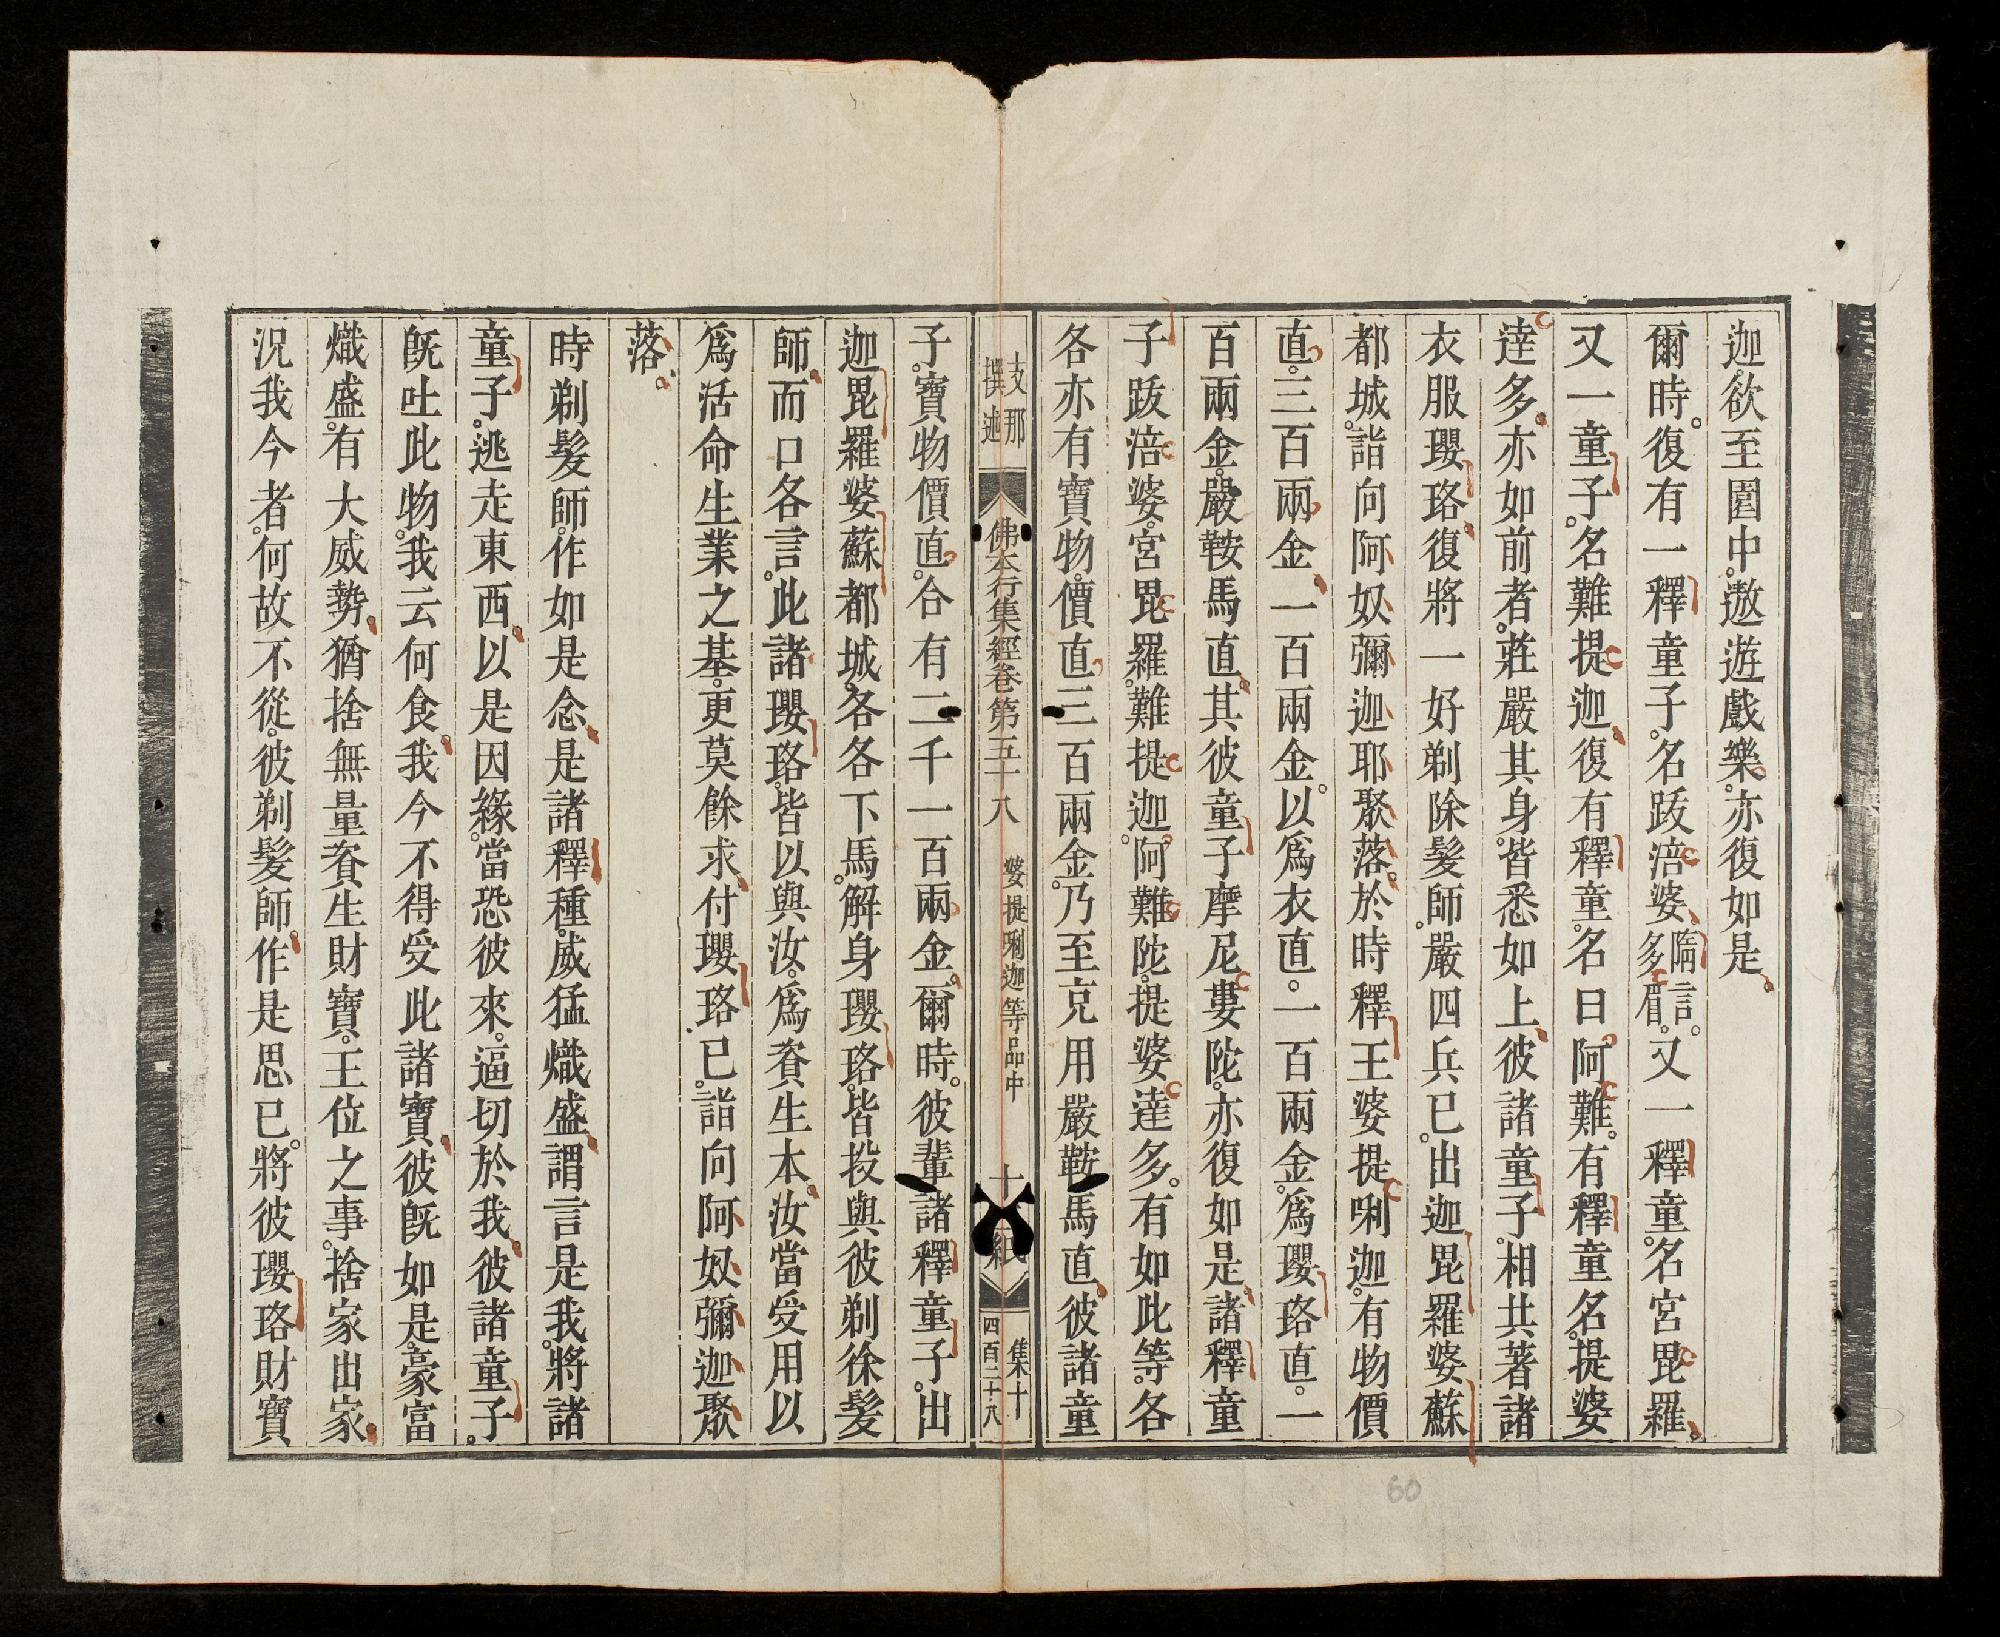 迦。欲至園中。遨遊戲樂。亦復如是
爾時。復有一釋童子。名跋涪婆隋言多眉。又一釋童。名宮毘羅
又一童子。名難提迦。復有釋童。名曰阿難。有釋童名。提婆
達多。亦如前者。莊嚴其身。皆悉如上。彼諸童子。相共著諸
衣服瓔珞。復將一好剃除髮師。嚴四兵已。出迦毘羅婆蘇
都城。詣向阿奴彌迦耶聚落。於時釋王婆提唎迦。有物價
直。三百兩金。一百兩金。以爲衣直。一百兩金。爲瓔珞直。一
百兩金。嚴鞍馬直。其彼童子摩尼婁陀。亦復如是。諸釋童
子跋涪婆。宮毘羅。難提迦。阿難陀。提婆達多。有如此等。各
各亦有寶物。價直三百兩金。乃至克用嚴鞍馬直。彼諸童
支那撰述 佛本行集經卷第五十八 婆提唎迦等品中 十 紙 集十 四百二十八
子。寶物價直。合有二千一百兩金。爾時。彼輩諸釋童子。出
迦毘羅婆蘇都城。各各下馬。解身瓔珞。皆投與彼剃徐髮
師。而口各言。此諸瓔珞。皆以與汝。爲資生本。汝當受用以
爲活命生業之基。更莫餘求。付瓔珞已。詣向阿奴彌迦聚
落。
時剃髮師。作如是念。是諸釋種。威猛熾盛。謂言是我。將諸
童子。逃走東西。以是因緣。當恐彼來。逼切於我。彼諸童子。
旣吐此物。我云何食。我今不得受此諸寶。彼旣如是。豪富
熾盛。有大威勢。猶捨無量資生財寶。王位之事。捨家出家。
況我今者。何故不從。彼剃髮師。作是思已。將彼瓔珞財寶
60